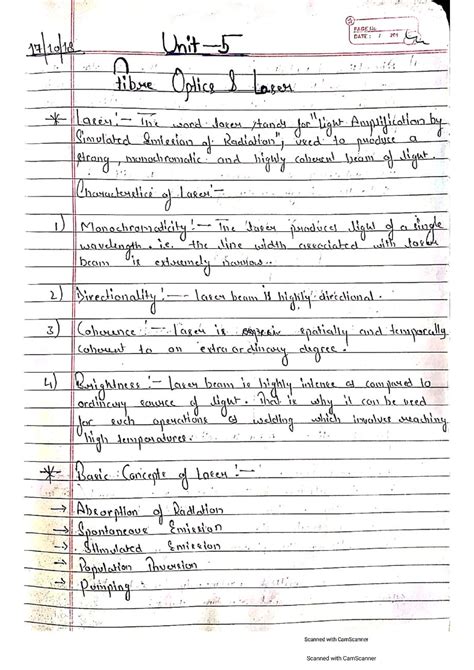 PAGE No.
DATE: / /201
17/10/18 Unit-5
Fibre Optics & Laser
* Laser:- The word laser stands for "Light Amplification by
Simulated Emission of Radiation", used to produce a
strong, monochromatic and highly coherent beam of light.
Characteristics of laser:-
1) Monochromaticity:- The laser produces light of a single
wavelength. i.e. the line width associated with laser
beam is extremely narrow.
2) Directionality:- laser beam is highly directional.
3) Coherence:- laser is spatially and temporally
coherent to an extraordinary degree.
4) Brightness:- laser beam is highly intense as compared to
ordinary source of light. That is why it can be used
for such operations as welding which involves reaching
high temperatures.
* Basic Concepts of laser:-
→ Absorption of Radiation
→ Spontaneous Emission
→ Stimulated Emission
→ Population Inversion
→ Pumping
Scanned with CamScanner
Scanned with CamScanner